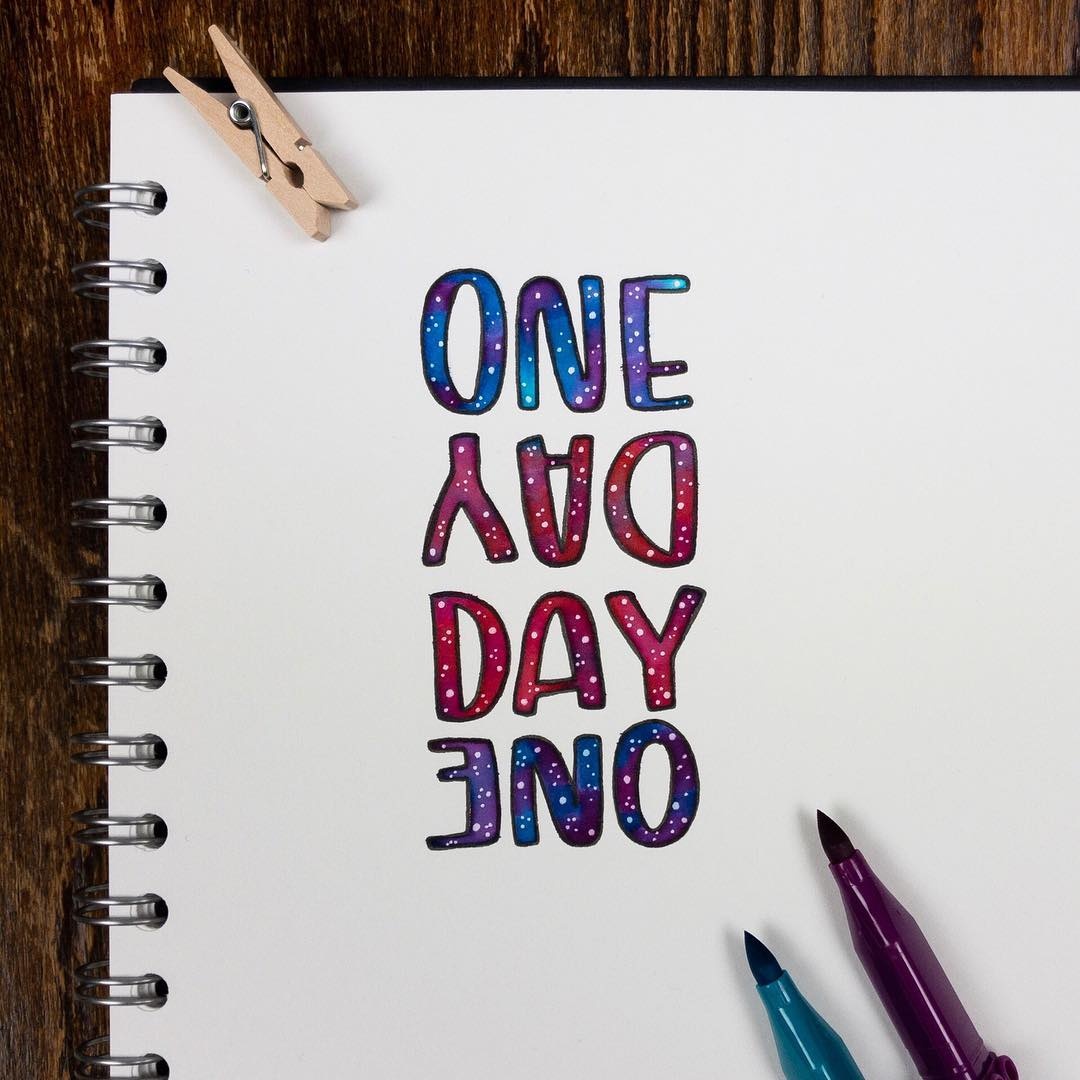 ONE
DAY
DAY
ONE